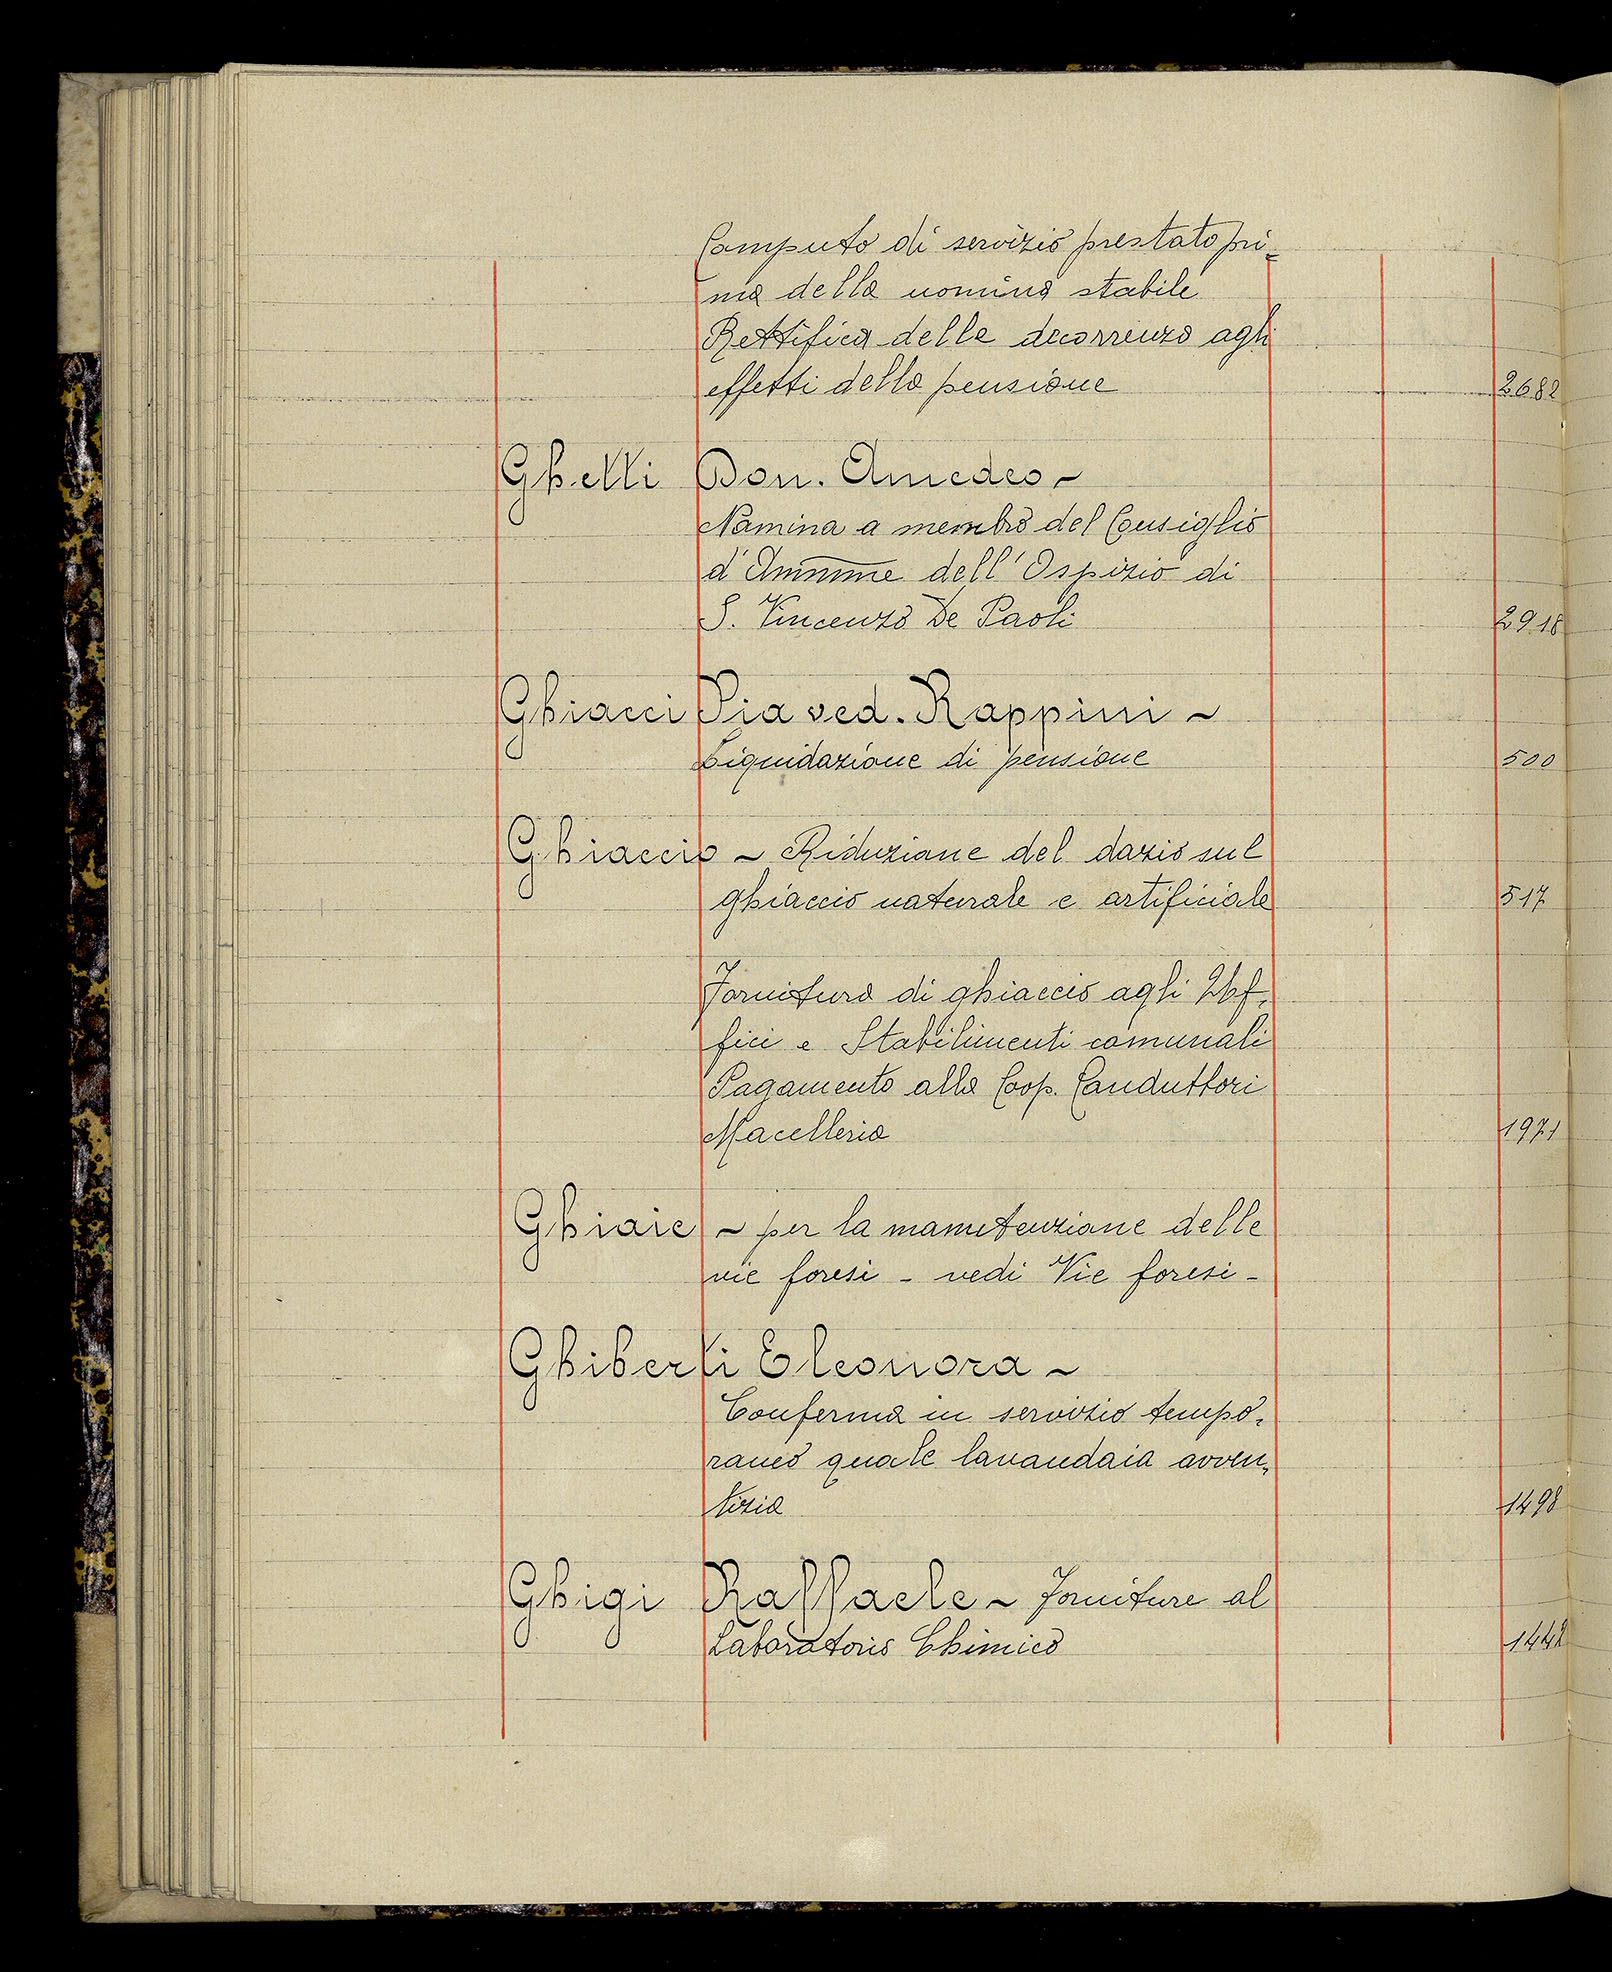 Computo di servizio prestato pri=
ma della nomina stabile
Rettifica delle decorrenza agli
effetti della pensione 2682
Ghetti Don. Amedeo ~
Nomina a membro del Consiglio
d'Ammne dell'Ospizio di
S. Vincenzo De Paoli 2918
Ghiacci Pia ved. Rappini ~
Liquidazione di pensione 500
Ghiaccio ~ Riduzione del dazio sul
ghiaccio naturale e artificiale 517
Fornitura di ghiaccio agli Uf=
fici e Stabilimenti comunali
Pagamento alla Coop. Conduttori
Macelleria 1971
Ghiaie ~ per la manutenzione delle
vie foresi - vedi Vie foresi -
Ghiberti Eleonora ~
Conferma in servizio tempo=
raneo quale lavandaia avven=
tizia 1498
Ghigi Raffaele ~ Forniture al
Laboratorio Chimico 1442